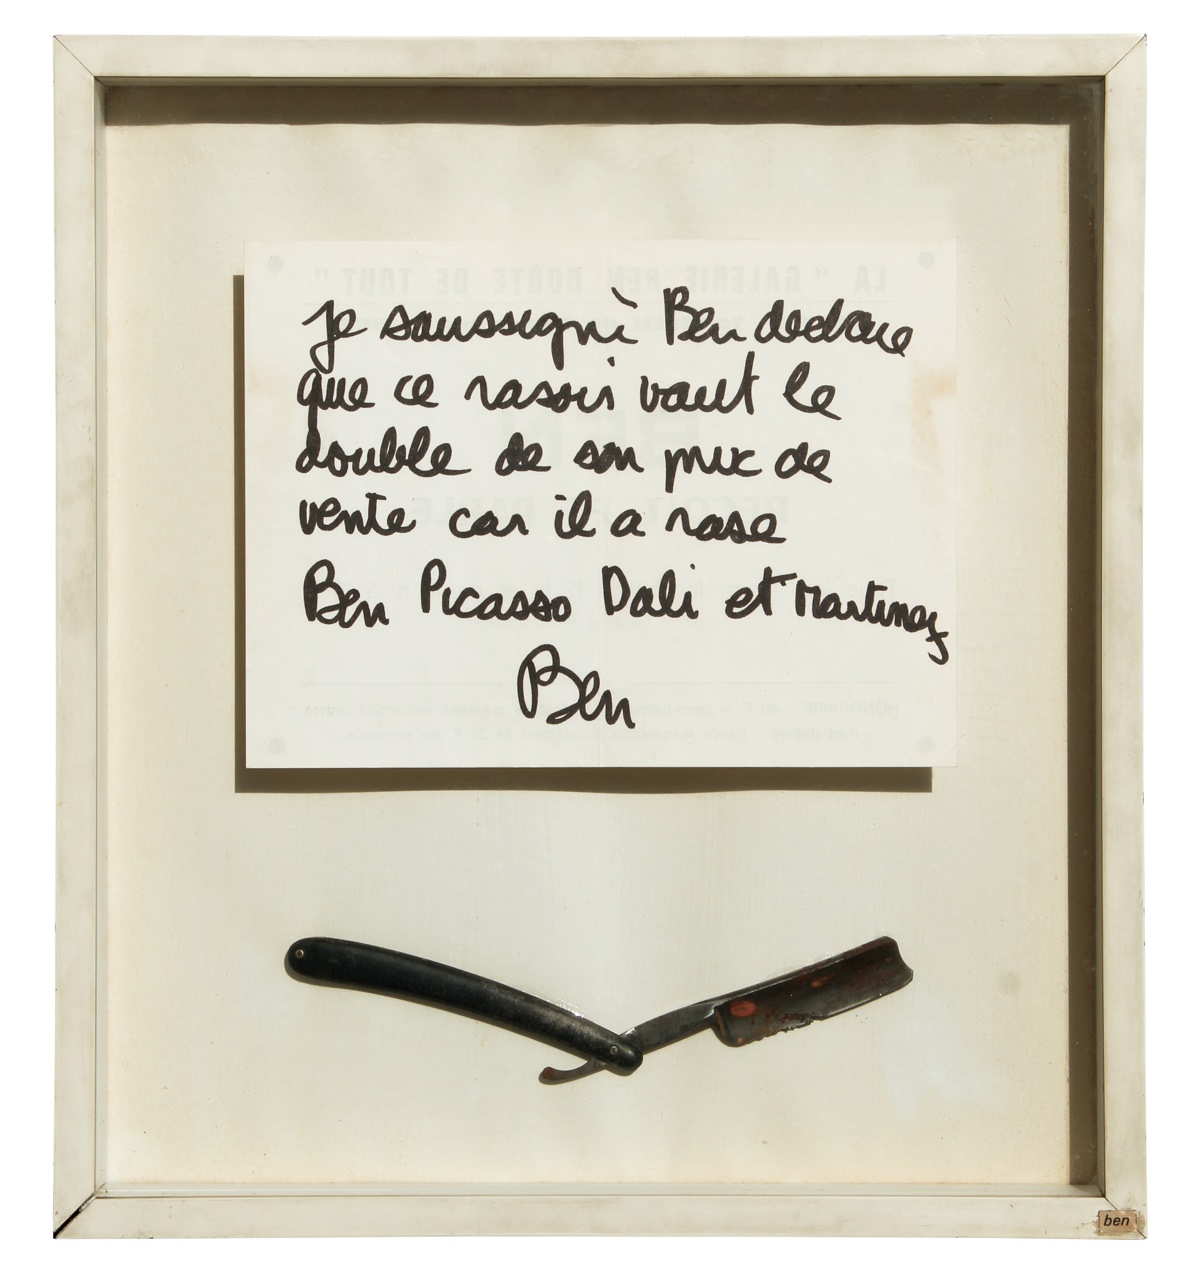 je soussignè Ben declare
que ce rasoir vaut le
double de son prix de
vente car il a rase
Ben Picasso Dali et Martinez
Ben
LA "GALERIE BEN DOUTE DE TOUT"
BEN
HONORAIRE
ben